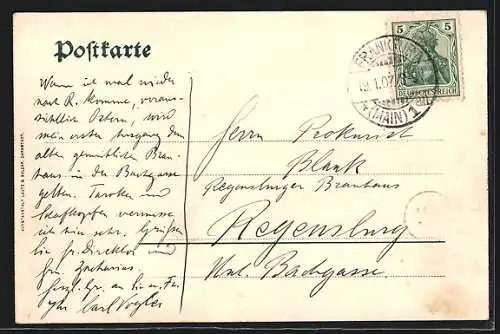 Postkarte
5 5
DEUTSCHES REICH
FRANKFURT
19.1.07
(MAIN) 1
Wenn ich mal wieder
nach R. komme, voraus-
sichtlich Ostern, wird
mein erster Ausgang dem
alten gemütlichen Brau-
haus in der Bachgasse
gelten. Tarocken und
Schafkopfen vermisse
ich hier sehr. Grüssen
Sie Hr. Direktor und
Zacharias.
Herzl. Gr. an Sie u. Fa-
Carl Vogler
Herrn Prokurist
Blank
Regensburger Brauhaus
Regensburg
Unt. Bachgasse.